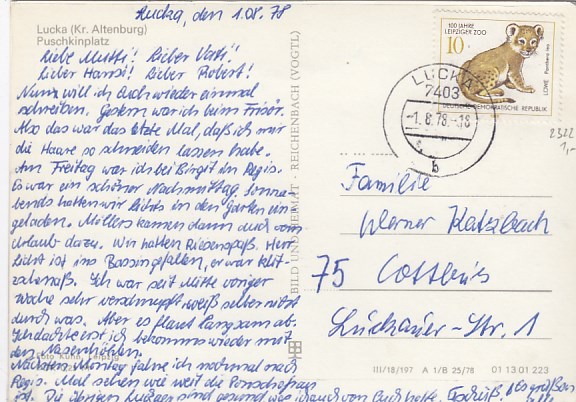 Lucka, den 1.08.78
Lucka (Kr. Altenburg)
Puschkinplatz
Liebe Mutti! Lieber Vati!
Lieber Hansi! Lieber Robert!
Nun will ich Euch wieder einmal
schreiben. Gestern war ich beim Frisör.
Also das war das letzte Mal, daß ich mir
die Haare so schneiden lassen habe.
Am Freitag war ich bei Birgit in Regis.
Es war ein schöner Nachmittag. Sonna-
bends hatten wir in den Garten ein-
geladen. Müllers kamen dann auch vom
Urlaub dazu. Wir hatten Riesenspaß. Herr
ist ins Bassin gefallen, er war klit-
schenaß. Ich war seit Mitte voriger
Woche sehr verschnupft, weiß selber nicht
durch was. Aber es flaut langsam ab.
Ich dachte erst ich bekomms wieder mit
den Nasenhöhlen.
Foto Kühn, Leipzig
Nächsten Montag fahre ich nochmal nach
Regis. Mal sehen wie weit die
ist. Die übrigen Luckaer sind gesund was auch von Euch hoffe. Es grüßen
BILD UND HEIMAT · REICHENBACH (VOGTL)
100 JAHRE
LEIPZIGER ZOO
10
LÖWE Panthera leo
DEUTSCHE DEMOKRATISCHE REPUBLIK
LUCKA
7403
-1.8.78.-18
b
2322
1,-
Familie
Werner Katzbach
75 Cottbus
Luckauer-Str. 1
III/18/197 A 1/B 25/78 01 13 01 223